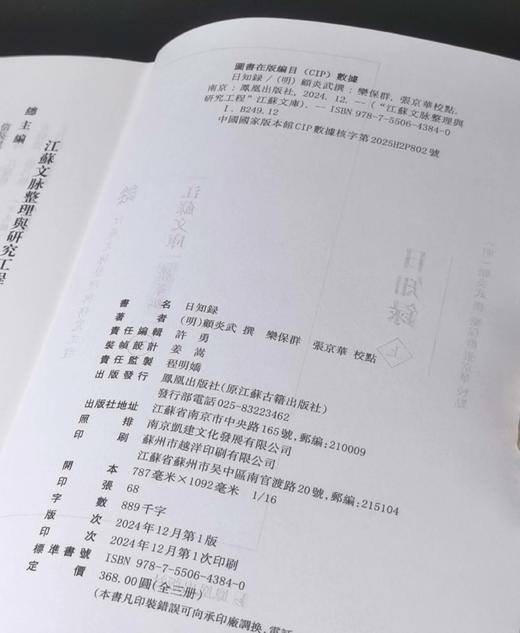 圖書在版編目（CIP）數據
日知録 / (明) 顧炎武撰 ; 欒保群, 張京華校點.
南京 : 鳳凰出版社, 2024. 12. —（“江蘇文脉整理與
研究工程”江蘇文庫）. — ISBN 978-7-5506-4384-0
Ⅰ. B249.12
中國國家版本館CIP數據核字第2025H2P802號
總主編
江蘇文脉整理與研究工程
日知録
上
江蘇文庫
書名 日知録
著者 (明)顧炎武 撰 欒保群 張京華 校點
責任編輯 許勇
裝幀設計 姜嵩
責任監製 程明嬌
出版發行 鳳凰出版社(原江蘇古籍出版社)
發行部電話025-83223462
出版社地址 江蘇省南京市中央路165號,郵編:210009
照排 南京凱建文化發展有限公司
印刷 蘇州市越洋印刷有限公司
江蘇省蘇州市吴中區南官渡路20號,郵編:215104
開本 787毫米×1092毫米 1/16
印張 68
字數 889千字
版次 2024年12月第1版
印次 2024年12月第1次印刷
標準書號 ISBN 978-7-5506-4384-0
定價 368.00圓(全三册)
(本書凡印裝錯誤可向承印廠調换,電話